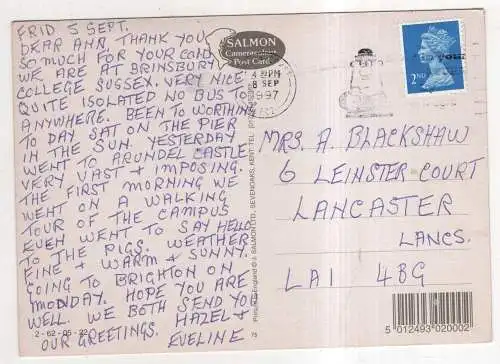 FRID 5 SEPT.
DEAR ANN, THANK YOU
SO MUCH FOR YOUR CARD
WE ARE AT BRINSBURY
COLLEGE SUSSEX. VERY NICE
QUITE ISOLATED NO BUS TO
ANYWHERE. BEEN TO WORTHING
TO DAY SAT ON THE PIER
IN THE SUN. YESTERDAY
WENT TO ARUNDEL CASTLE
VERY VAST & IMPOSING.
THE FIRST MORNING WE
WENT ON A WALKING
TOUR OF THE CAMPUS
EVEN WENT TO SAY HELLO
TO THE PIGS. WEATHER
FINE & WARM & SUNNY.
GOING TO BRIGHTON ON
MONDAY. HOPE YOU ARE
WELL. WE BOTH SEND YOU
OUR GREETINGS. HAZEL &
EVELINE
2-62-05-22
SALMON
Cameracolour
Post Card
Printed in England © J. SALMON LTD., SEVENOAKS, KENT. TEL:
75
4 PM
8 SEP
1997
your
2ND
MRS. A BLACKSHAW
6 LEINSTER COURT
LANCASTER
LANCS.
LA1 4BG
5 012493 020002